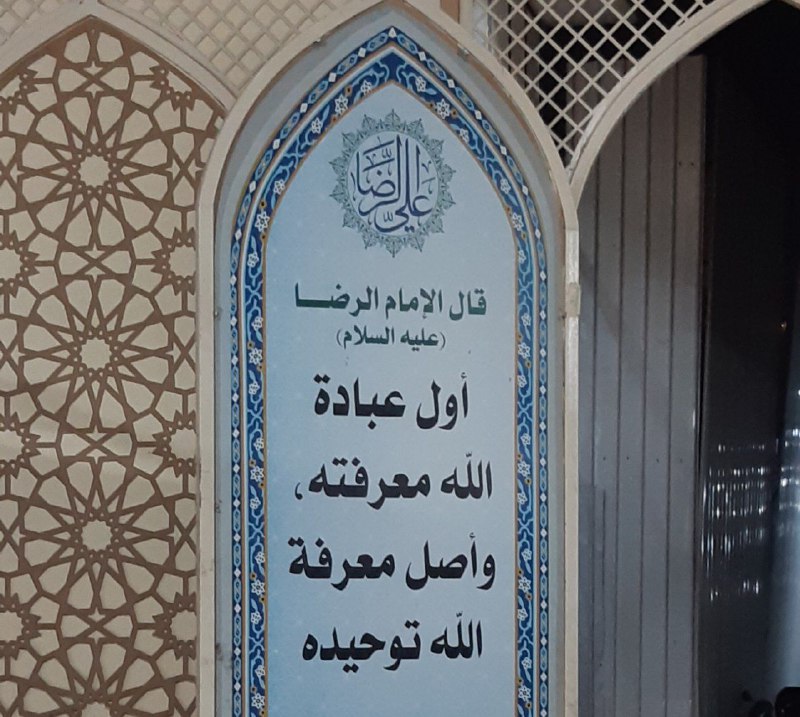 علي الرضا
قال الإمام الرضـــا
(عليه السلام)
أول عبادة
الله معرفته،
وأصل معرفة
الله توحيده